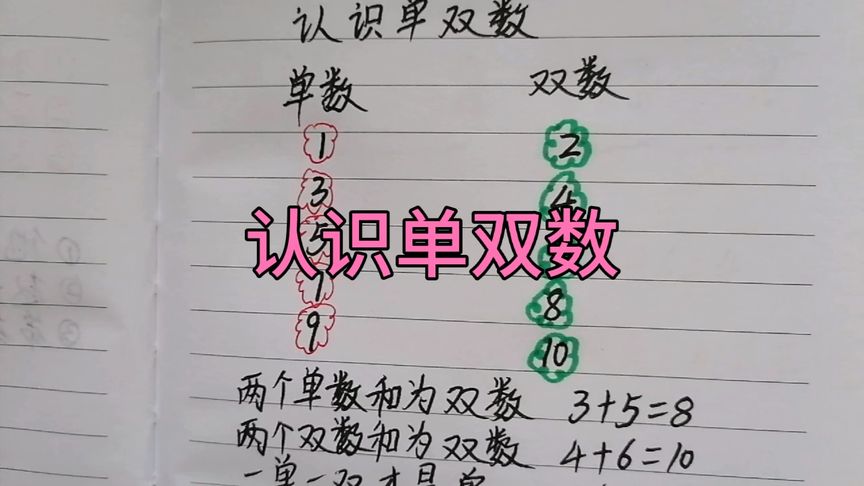 认识单双数
单数 双数
1 2
3 4
认识单双数
5
7 8
9 10
两个单数和为双数 3+5=8
两个双数和为双数 4+6=10
一单一双才是单